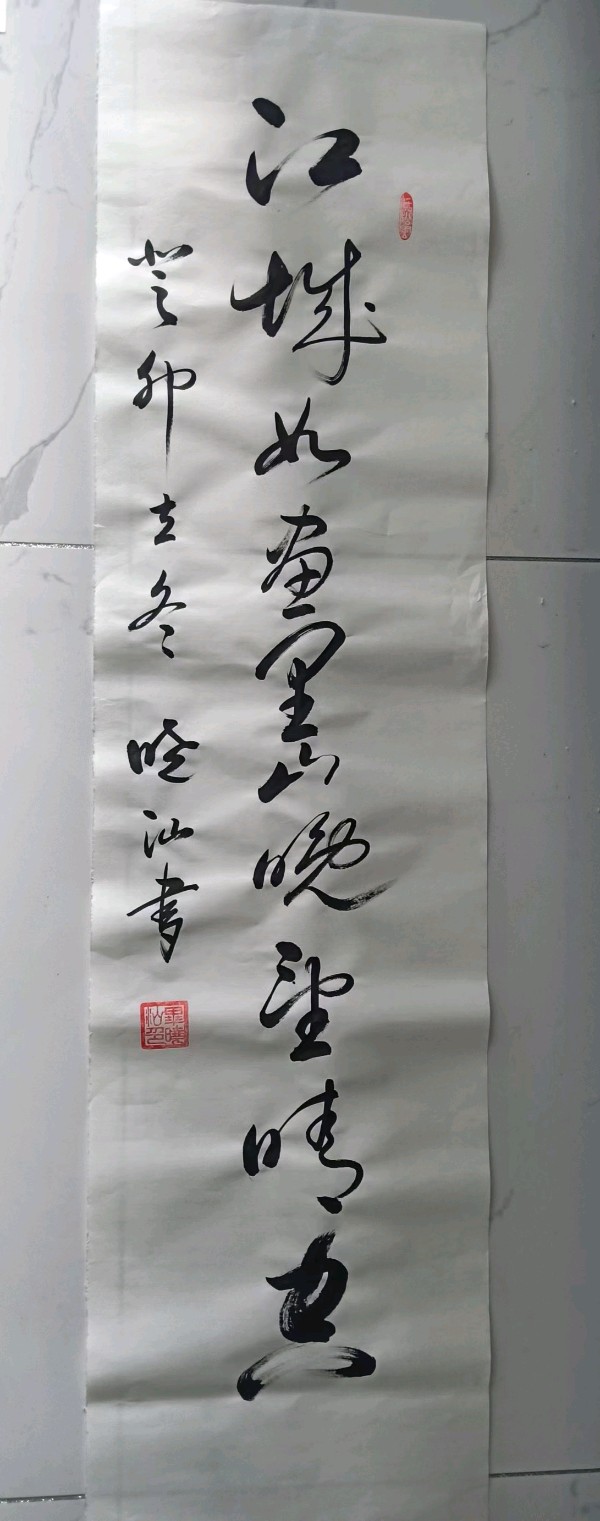 江城如画里山晚望晴空
癸卯立冬 晓汕书